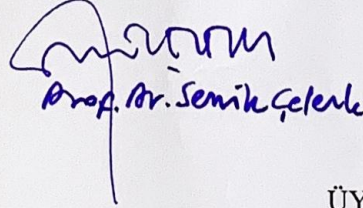 Prof. Dr. Semih Çelenk
ÜY